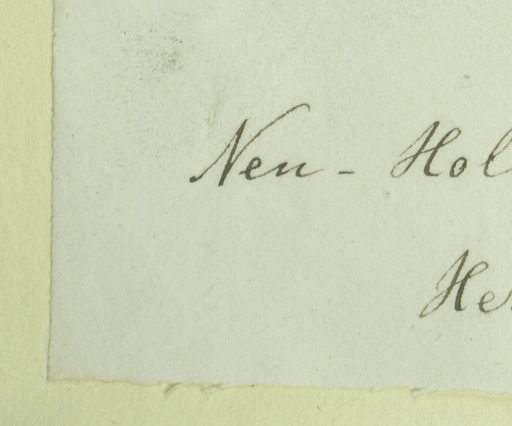 Neu - Hol
He